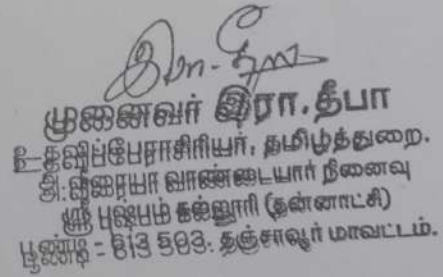 இரா. தீபா
முனைவர் இரா.தீபா
உதவிப்பேராசிரியர், தமிழ்த்துறை.
அ.வீரையா வாண்டையார் நினைவு
ஸ்ரீ புஷ்பம் கல்லூரி (தன்னாட்சி)
பூண்டி - 613 503. தஞ்சாவூர் மாவட்டம்.